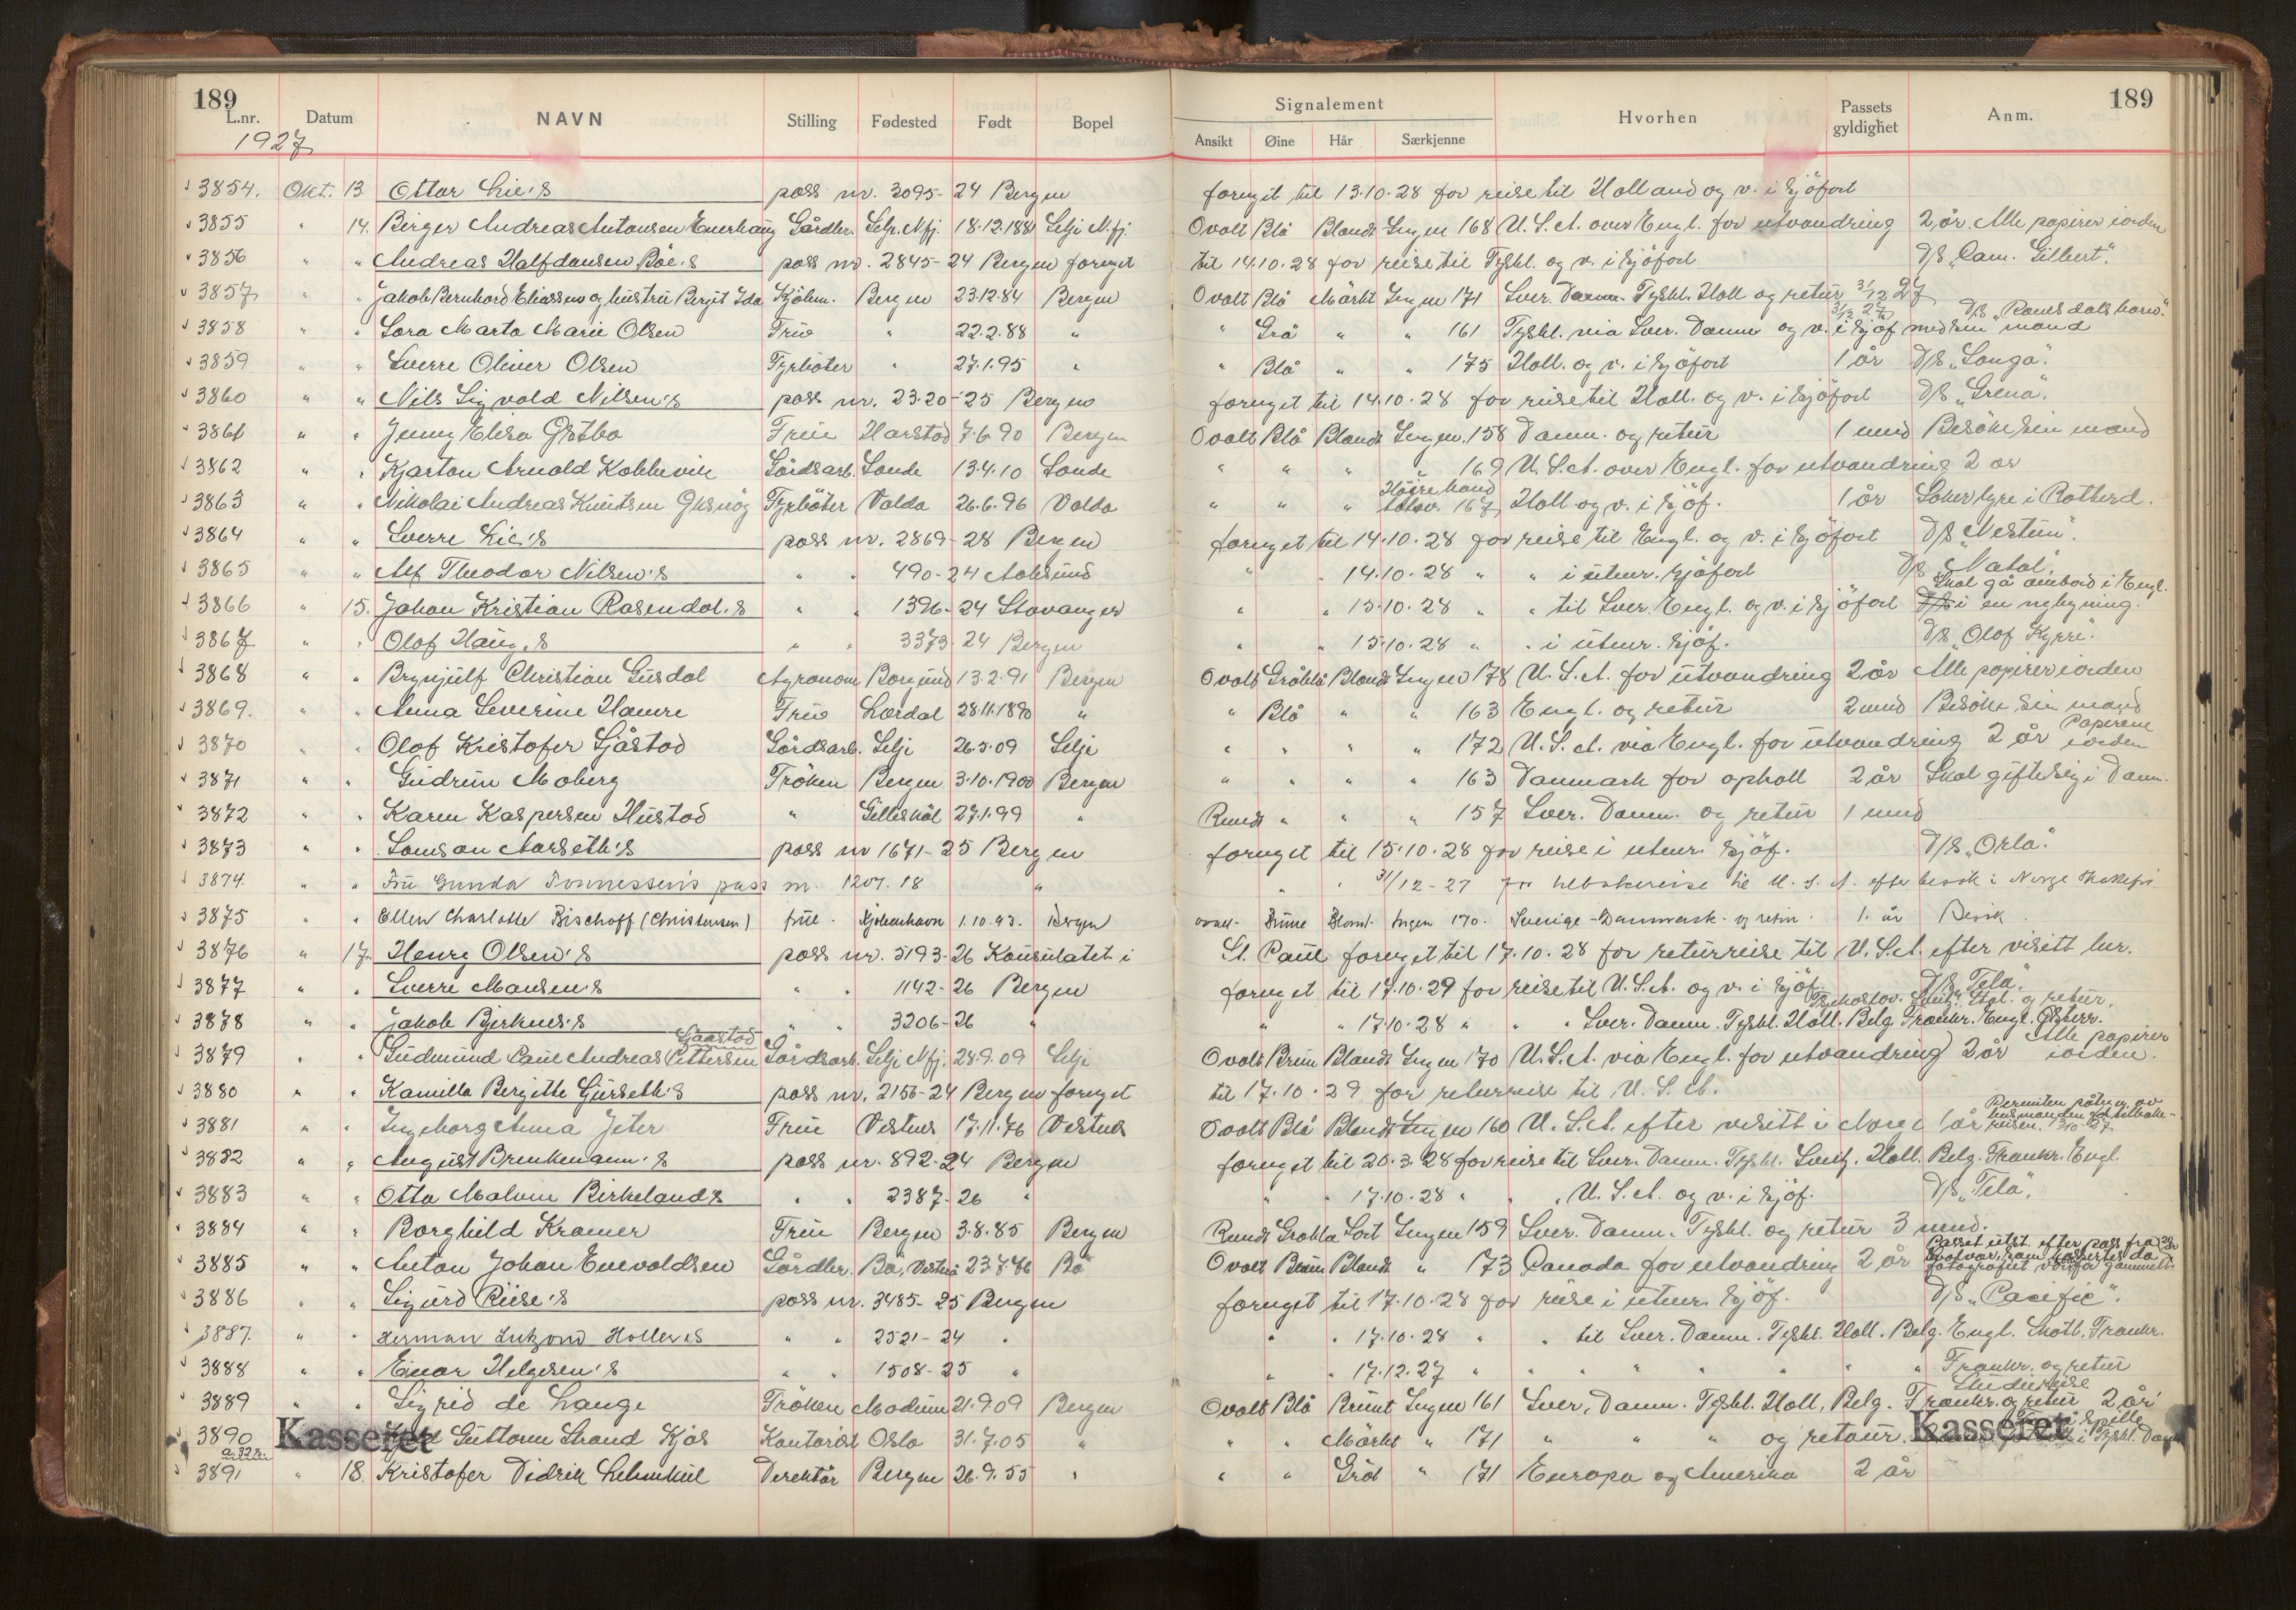 189 189
L.nr. Datum NAVN Stilling Fødested Født Bopel Signalement Hvorhen Passets gyldighet Anm.
Ansikt Øine Hår Særkjenne
1927
3854. Okt. 13. Ottar Lie's pass nr. 3095-24 Bergen fornyet til 13.10.28 for reise til Holland og v. i sjöfart
3855 " 14. Birger Andreas Antonsen Gårdbr. Selje N.fj. 18.12.1881 Selje N.fj. Ovalt Blå Blandt Ingen 168 U.S.A. over Engl. for utvandring 2 år. Alle papirer iorden
3856 " " Andreas Halfdansen Böe's pass nr. 2845-24 Bergen fornyet til 14.10.28 for reise til Tyskl. og v. i sjöfart D/S "Cam. Gilbert".
3857 " " Jakob Bernhard Eliassen og hustru Bergit Ida Kjöbm. Bergen 23.12.84 Bergen Ovalt Blå Mörkt Ingen 171 Sver. Danm. Tyskl. Holl og retur 31/12 27
3858 " " Sara Marta Marie Olsen Frue " 22.2.88 " " Grå " " 161 Tyskl. via Sver. Danm og v. i sjöf med sin mand 31/12 27 D/S "Ranesdalshorn".
3859 " " Sverre Oliver Olsen Fyrböter " 27.1.95 " " Blå " " 175 Holl. og v. i sjöfart 1 år D/S "Songa".
3860 " " Nils Sigvald Nilsen's pass nr. 2320-25 Bergen fornyet til 14.10.28 for reise til Holl. og v. i sjöfart D/S "Grena".
3861 " " Jenny Elisa Frue Harstad 7.6.90 Bergen Ovalt Blå Blandt Ingen 158 Danm. og retur 1 mnd Besöke sin mand
3862 " " Kjartan Arnold Kobbevik Gårdsarb. Sande 13.4.10 Sande " " " " 169 U.S.A. over Engl. for utvandring 2 år
3863 " " Nikolai Andreas Knutsen Fyrböter Valda 26.6.96 Valda " " " Höire hand tatov. 167 Holl og v. i sjöf. 1 år Söker hyre i Rotterd.
3864 " " Sverre Lie's pass nr. 2869-28 Bergen fornyet til 14.10.28 for reise til Engl. og v. i sjöfart D/S "Nestun".
3865 " " Alf Theodor Nilsen's " " 490-24 Aalesund " " 14.10.28 " " i utenr. sjöfart D/S "Natal".
3866 " 15. Johan Kristian Rosendal's " " 1396-24 Stavanger " " 15.10.28 " " til Sver. Engl. og v. i sjöfart Skal gå ombord i Engl. i en nybygning.
3867 " " Olaf Haug's " " 3373-24 Bergen " " 15.10.28 " " i utenr. sjöf. D/S "Olaf Kyrre".
3868 " " Brynjulf Christian Gusdal Agronom Borgund 13.2.91 Bergen Ovalt Gråblå Blandt Ingen 178 U.S.A. for utvandring 2 år Alle papirer iorden
3869. " " Anna Severine Hamre Frue Lærdal 28.11.1890 " " Blå " " 163 Engl. og retur 2 mnd Besöke sin mand
3870 " " Olaf Kristofer Sjåstad Gårdsarb. Selje 26.5.09 Selje " " " " 172 U.S.A. via Engl. for utvandring 2 år Papirene iorden
3871 " " Gudrun Moberg Fröken Bergen 3.10.1900 Bergen " " " " 163 Danmark for ophold 2 år Skal gifte sig i Danm.
3872 " " Karen Kaspersen Hustad " Gilleskål 27.1.99 " Rundt " " " 157 Sver. Danm. og retur 1 mnd
3873 " " Samson Aarseth's pass nr 1671-25 Bergen fornyet til 15.10.28 for reise i utenr. sjöf. D/S "Orla".
3874. " " Fru Gunda Tonnessens pass nr. 1207.18 " " " 31/12-27 for tilbakereise til U.S.A. efter besök i Norge
3875 " " Ellen Charlotte Bischoff (Christensen) frue Kjøbenhavn 1.10.93. Bergen ovalt Brune Blond. Ingen 170. Sverige-Danmark- og retur 1. år Besök
3876 " 17. Henry Olsen's pass nr. 5193-26 Konsulatet i St. Paul fornyet til 17.10.28 for returreise til U.S.A. efter visitt her.
3877 " " Sverre Monsen's " " 1142-26 Bergen fornyet til 17.10.29 for reise til U.S.A. og v. i sjöf. D/S "Tela".
3878 " " Jakob Bjerknes's " " 3206-26 " " " 17.10.28 " " " Sver. Danm. Tyskl. Holl. Belg. Frankr. Engl. Österr. Tjekoslov. Ital. og retur.
3879 " " Gudmund Paul Andreas Pettersen Sjaastad Gårdsarb. Selje N.fj. 28.9.09 Selje Ovalt Brun Blandt Ingen 170 U.S.A. via Engl. for utvandring 2 år Alle papirer iorden.
3880 " " Kamilla Bergitte Gjurseth's pass nr. 2156-24 Bergen fornyet til 17.10.29 for returreise til U.S.A.
3881 " " Ingeborg Anna Frue Vestnes 17.11.76 Vestnes Ovalt Blå Blandt Ingen 160 U.S.A. efter visitt i Norge 1 år
3882 " " August Brenkmann's pass nr. 892-24 Bergen fornyet til 20.3.28 for reise til Sver. Danm. Tyskl. Sveitz. Holl. Belg. Frankr. Engl.
3883 " " Otto Malvin Birkeland's " " 2387-26 " " " 17.10.28 " " " U.S.A. og v. i sjöf. D/S "Tela".
3884 " " Borghild Kramer Frue Bergen 3.8.85 Bergen Rundt Gråblå Sort Ingen 159 Sver. Danm. Tyskl. og retur 3 mnd.
3885 " " Anton Johan Enevoldsen Gårdbr. Bö, Vesterå 23.7.76 Bö Ovalt Brun Blandt " 173 Canada for utvandring 2 år Passet utst. efter pass fra som kassertes da fotografiet var for gammelt
3886 " " Sigurd Riise's pass nr. 3485-25 Bergen fornyet til 17.10.28 for reise i utenr. sjöf. D/S "Pacific".
3887. " " Herman Lutzow Holler's " " 2521-24 " " " 17.10.28 " " til Sver. Danm. Tyskl. Holl. Belg. Engl. Skotl. Frankr.
3888 " " Einar Helgesen's " " 1508-25 " " " 17.12.27 " " " " " " " " Frankr. og retur
3889 " " Sigrid de Lange Fröken Modum 21.9.09 Bergen Ovalt Blå Brunt Ingen 161 Sver. Danm. Tyskl. Holl. Belg. Frankr. og retur 2 år Studiereise
3890 Kasseret Guttorm Strand Kjös Kontorist Oslo 31.7.05 " " " Mörkt " 171 " " " og retour. Kasseret
3891 " 18. Kristofer Didrik Lehmkul Direktör Bergen 26.9.55 " " " Gråt " 171 Europa og Amerika 2 år